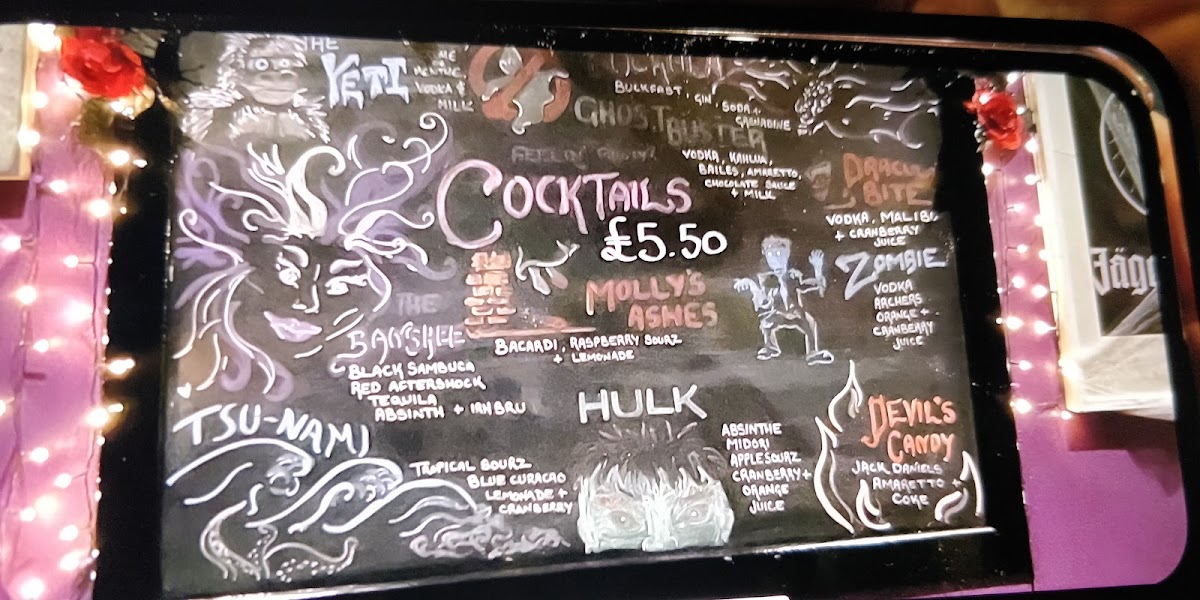 THE
YETI
CRÈME
DE
MENTHE,
VODKA +
MILK
BUCKFAST, GIN, SODA +
GRENADINE
GHOSTBUSTER
VODKA, KAHLUA,
BAILES, AMARETTO,
CHOCOLATE SAUCE
+ MILK
COCKTAILS
£5.50
DRACULA
BITE
VODKA, MALIBU
+ CRANBERRY
JUICE
THE
BANSHEE
BLACK SAMBUCA
RED AFTERSHOCK
TEQUILA
ABSINTH + IRN BRU
MOLLY'S
ASHES
BACARDI, RASPBERRY SOURZ
+ LEMONADE
ZOMBIE
VODKA
ARCHERS
ORANGE +
CRANBERRY
JUICE
TSU-NAMI
TROPICAL SOURZ
BLUE CURACAO
LEMONADE +
CRANBERRY
HULK
ABSINTHE
MIDORI
APPLE SOURZ
CRANBERRY +
ORANGE
JUICE
DEVIL'S
CANDY
JACK DANIELS
AMARETTO +
COKE
Jäge